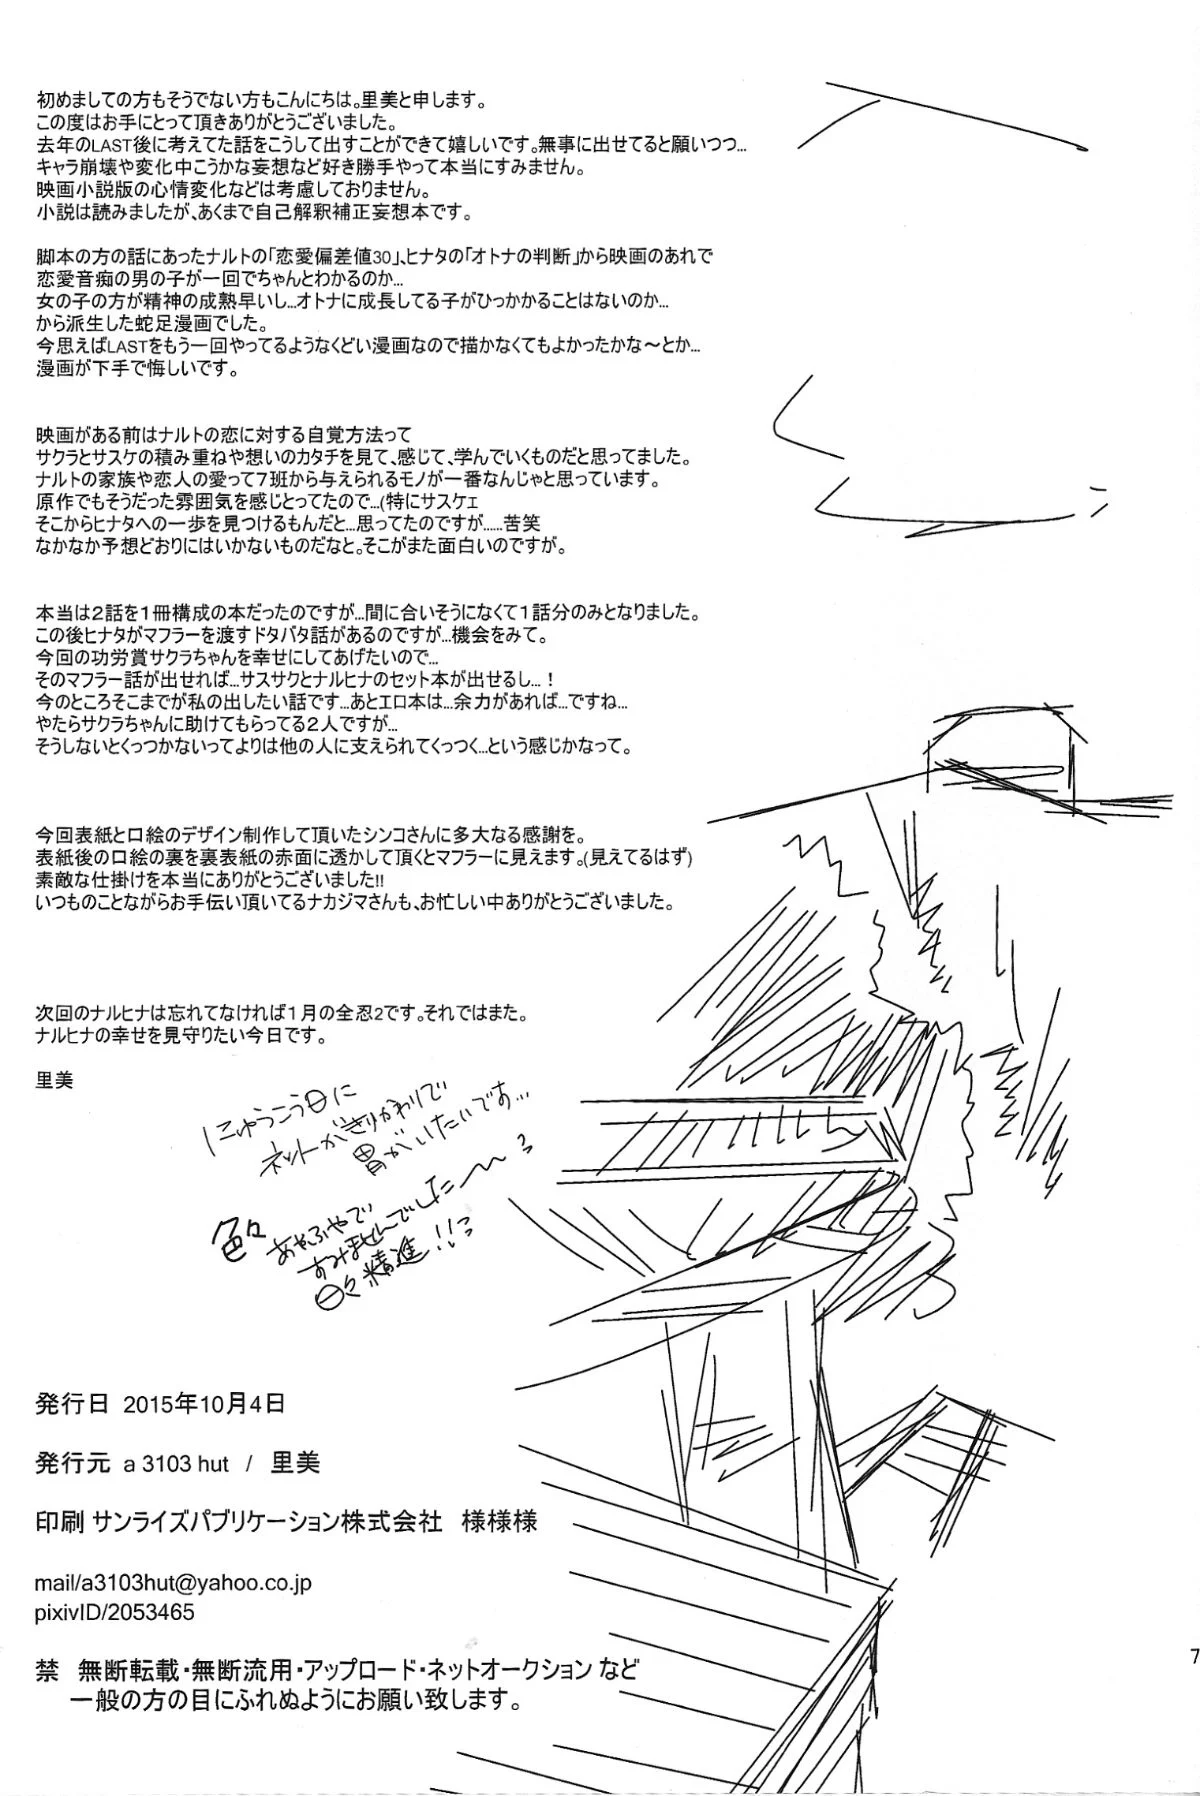 初めましての方もそうでない方もこんにちは。里美と申します。
この度はお手にとって頂きありがとうございました。
去年のLAST後に考えてた話をこうして出すことができて嬉しいです。無事に出せてると願いつつ…
キャラ崩壊や変化中こうかな妄想など好き勝手やって本当にすみません。
映画小説版の心情変化などは考慮しておりません。
小説は読みましたが、あくまで自己解釈補正妄想本です。
脚本の方の話にあったナルトの「恋愛偏差値30」、ヒナタの「オトナの判断」から映画のあれで
恋愛音痴の男の子が一回でちゃんとわかるのか…
女の子の方が精神の成熟早いし…オトナに成長してる子がひっかかることはないのか…
から派生した蛇足漫画でした。
今思えばLASTをもう一回やってるようなくどい漫画なので描かなくてもよかったかな～とか…
漫画が下手で悔しいです。
映画がある前はナルトの恋に対する自覚方法って
サクラとサスケの積み重ねや想いのカタチを見て、感じて、学んでいくものだと思ってました。
ナルトの家族や恋人の愛って７班から与えられるモノが一番なんじゃと思っています。
原作でもそうだった雰囲気を感じとってたので…(特にサスケェ
そこからヒナタへの一歩を見つけるもんだと…思ってたのですが……苦笑
なかなか予想どおりにはいかないものだなと。そこがまた面白いのですが。
本当は２話を１冊構成の本だったのですが…間に合いそうになくて１話分のみとなりました。
この後ヒナタがマフラーを渡すドタバタ話があるのですが…機会をみて。
今回の功労賞サクラちゃんを幸せにしてあげたいので…
そのマフラー話が出せれば…サスサクとナルヒナのセット本が出せるし…！
今のところそこまでが私の出したい話です…あとエロ本は…余力があれば…ですね…
やたらサクラちゃんに助けてもらってる２人ですが…
そうしないとくっつかないってよりは他の人に支えられてくっつく…という感じかなって。
今回表紙と口絵のデザイン制作して頂いたシンコさんに多大なる感謝を。
表紙後の口絵の裏を裏表紙の赤面に透かして頂くとマフラーに見えます。(見えてるはず)
素敵な仕掛けを本当にありがとうございました!!
いつものことながらお手伝い頂いてるナカジマさんも、お忙しい中ありがとうございました。
次回のナルヒナは忘れてなければ１月の全忍2です。それではまた。
ナルヒナの幸せを見守りたい今日です。
里美
にゅうこう日に
ネットがきりかわりで
胃がいたいです…
色々あやふやで
すみませんでした〜〜っ
日々精進!!っ
発行日 2015年10月4日
発行元 a 3103 hut / 里美
印刷 サンライズパブリケーション株式会社 様様様
mail/a3103hut@yahoo.co.jp
pixivID/2053465
禁 無断転載・無断流用・アップロード・ネットオークション など
一般の方の目にふれぬようにお願い致します。
7